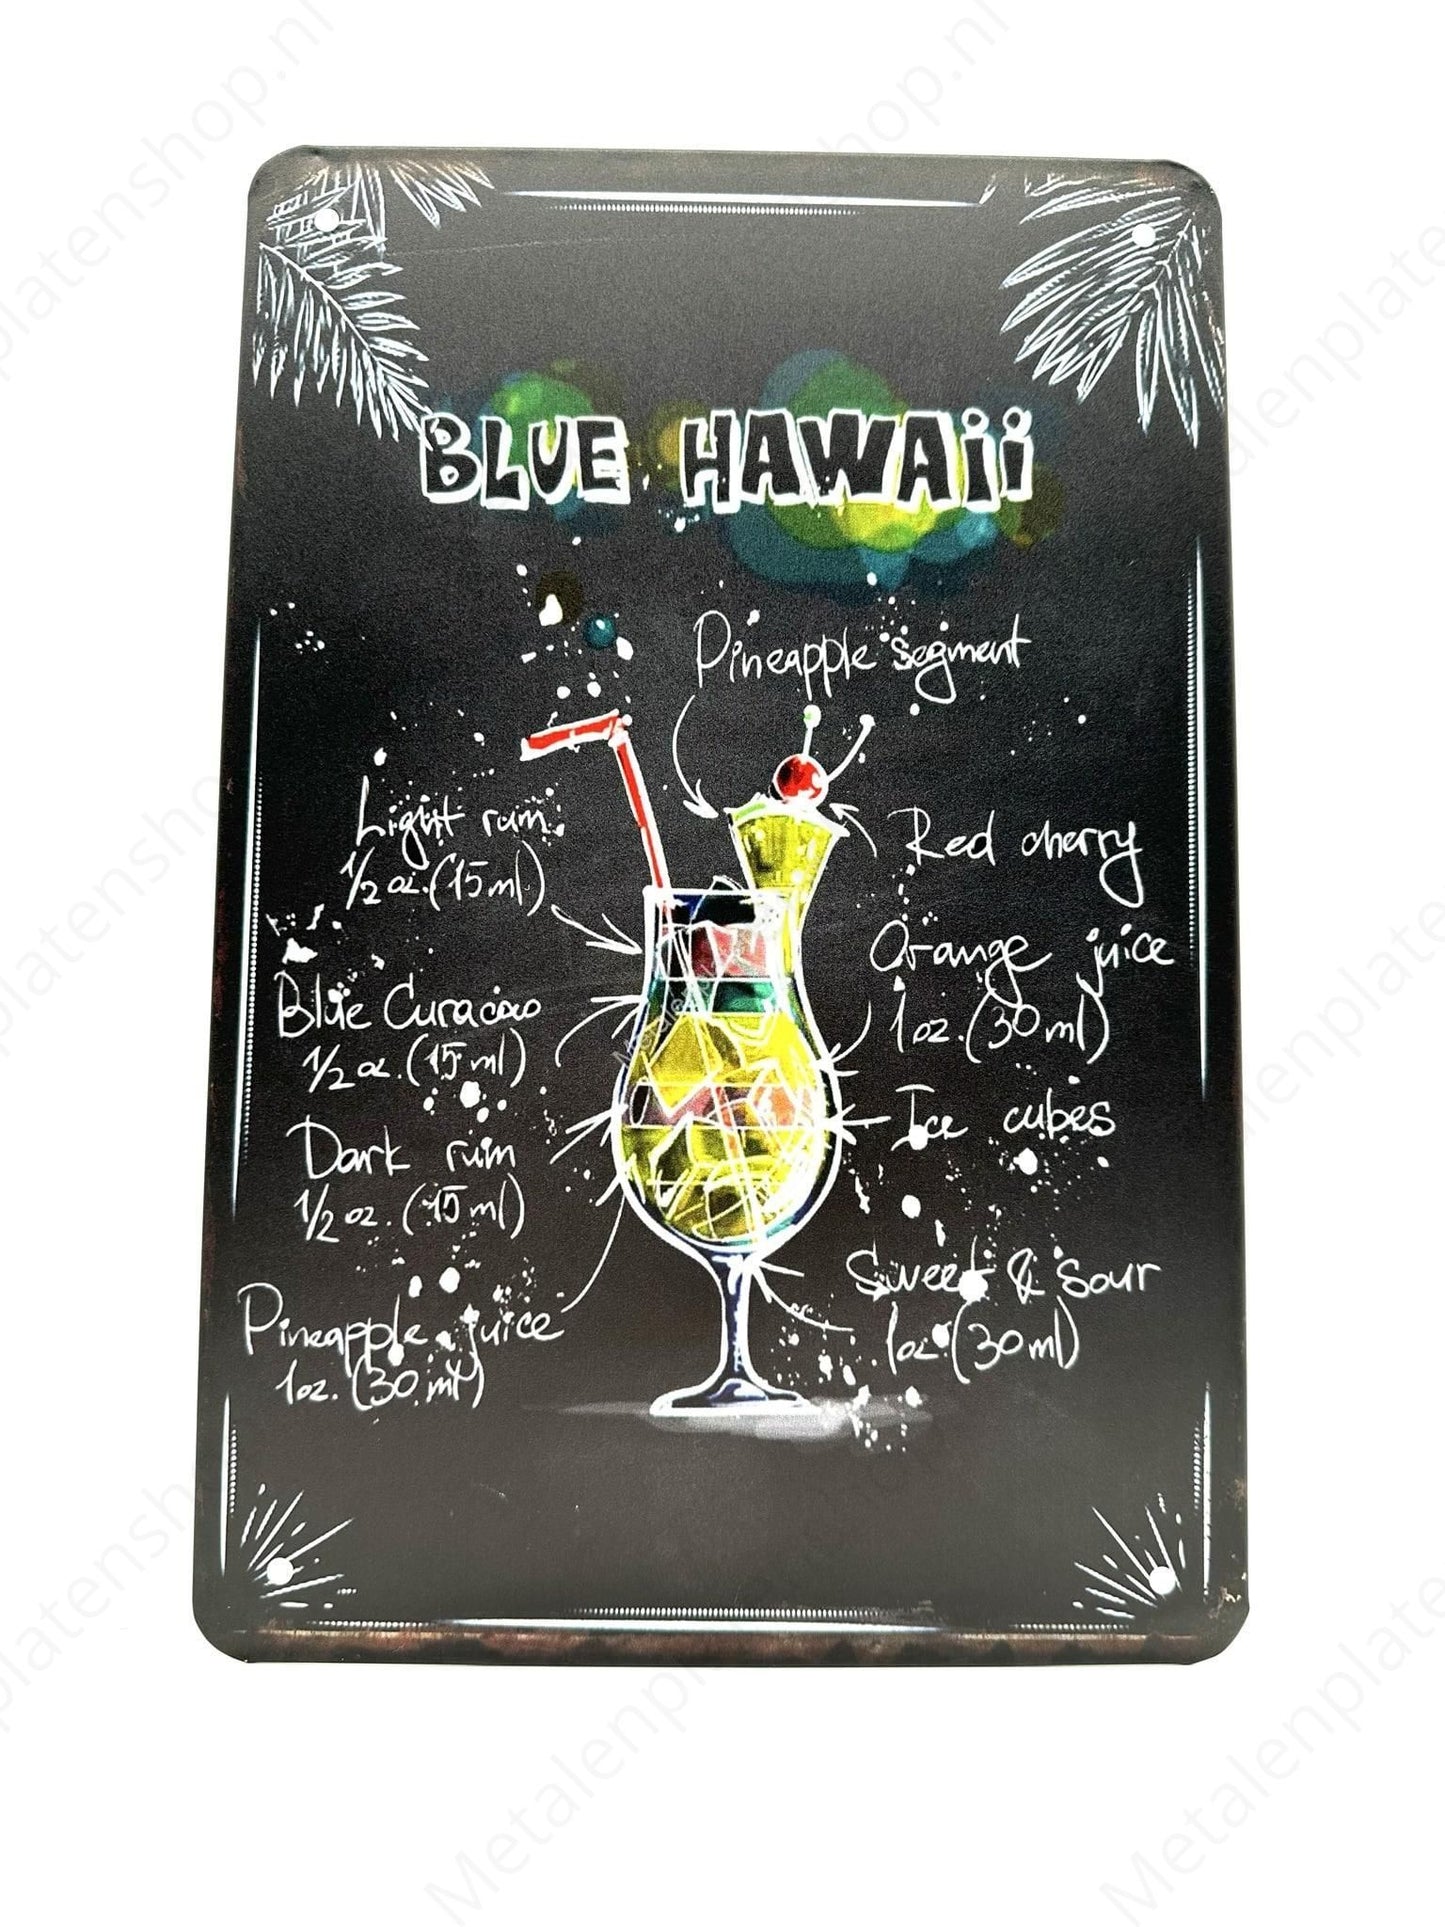 BLUE HAWAII
Pineapple segment
Light rum
1/2 oz. (15 ml)
Red cherry
Orange juice
1 oz. (30 ml)
Blue Curacao
1/2 oz. (15 ml)
Ice cubes
Dark rum
1/2 oz. (15 ml)
Sweet & Sour
1oz. (30 ml)
Pineapple juice
1oz. (30 ml)
Metalenplatenshop.nl